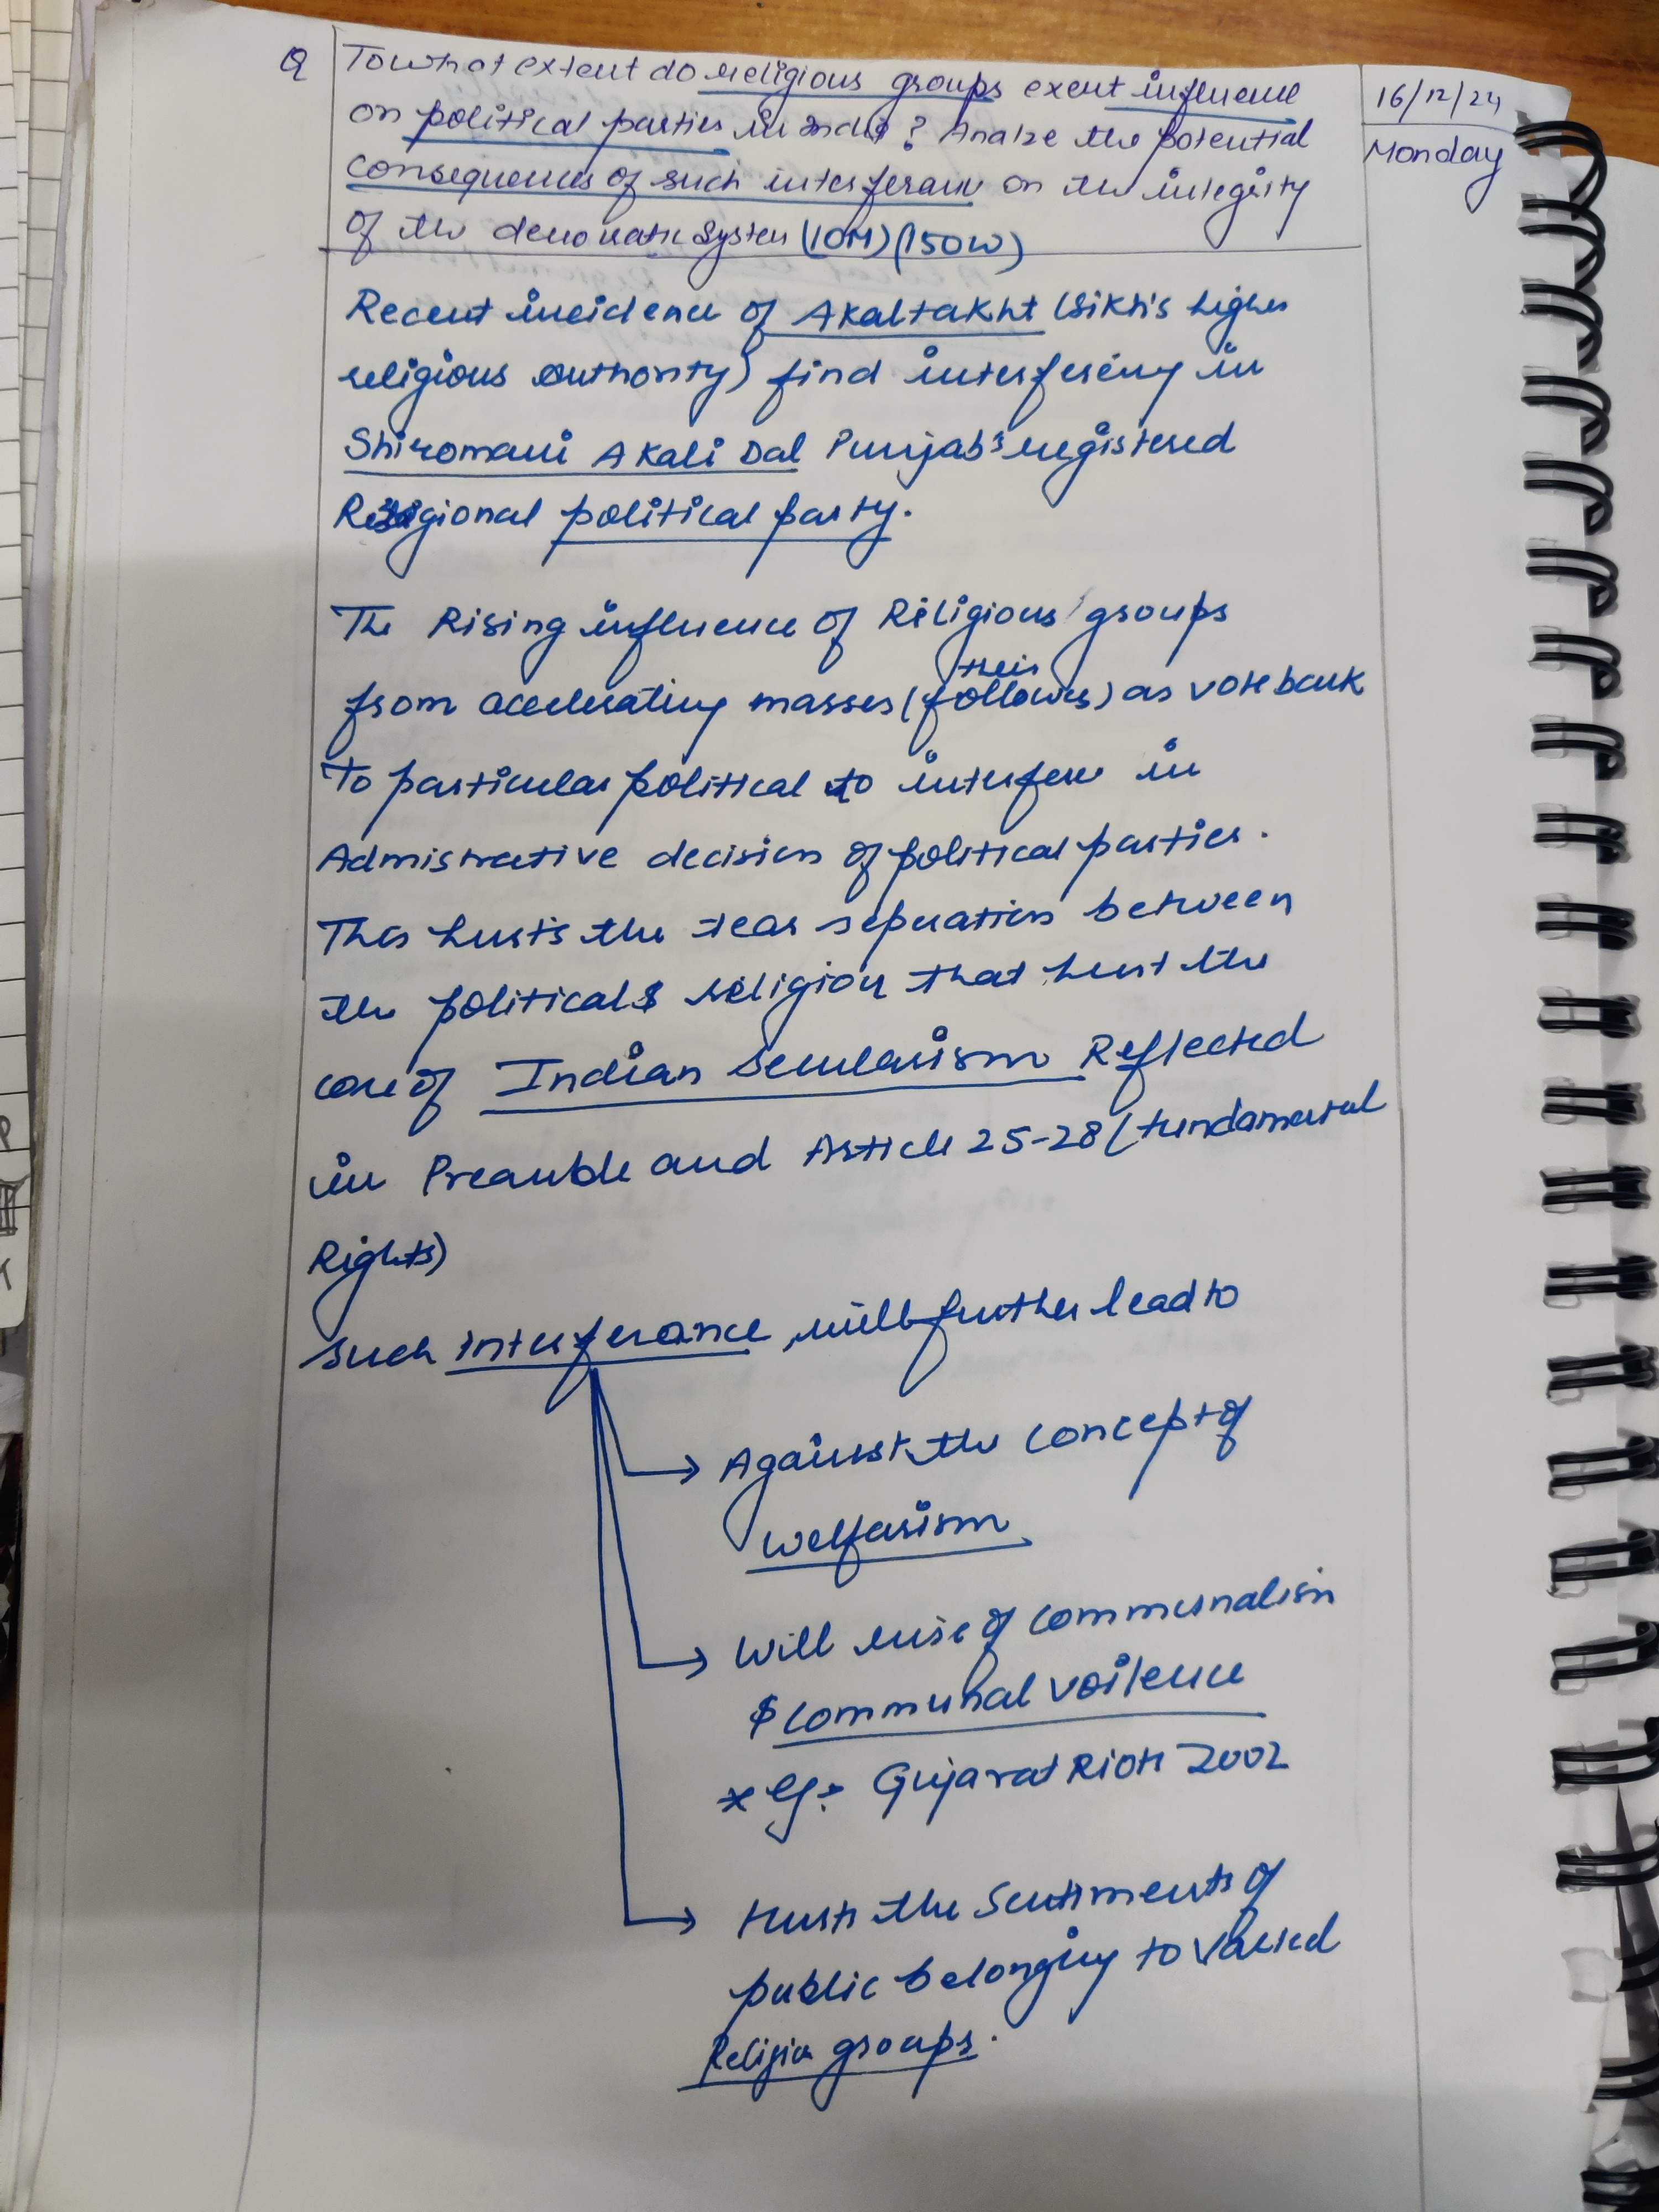 Q To what extent do religious groups exert influence
on political parties in India? Analze the potential
consequences of such interferance on the integrity
of the democratic system (10M) (150W)
16/12/24
Monday
Recent incidence of Akaltakht (Sikh's higher
religious authority) find interfering in
Shiromani Akali Dal Punjab's registered
Regional political party.
The Rising influence of Religious groups
from accelerating masses (their followers) as vote bank
To particular political to interfere in
Admistrative decision of political parties.
This hurts the clear seperation between
the political & religion that hurt the
core of Indian Secularism Reflected
in Preamble and Article 25-28 (Fundamental
Rights)
Such interferance, will further lead to
Against the concept of
welfarism
Will rise of communalism
& communal voilence
* eg:- Gujarat Riots 2002
Hurts the Sentiments of
public belonging to Varied
Religion groups.